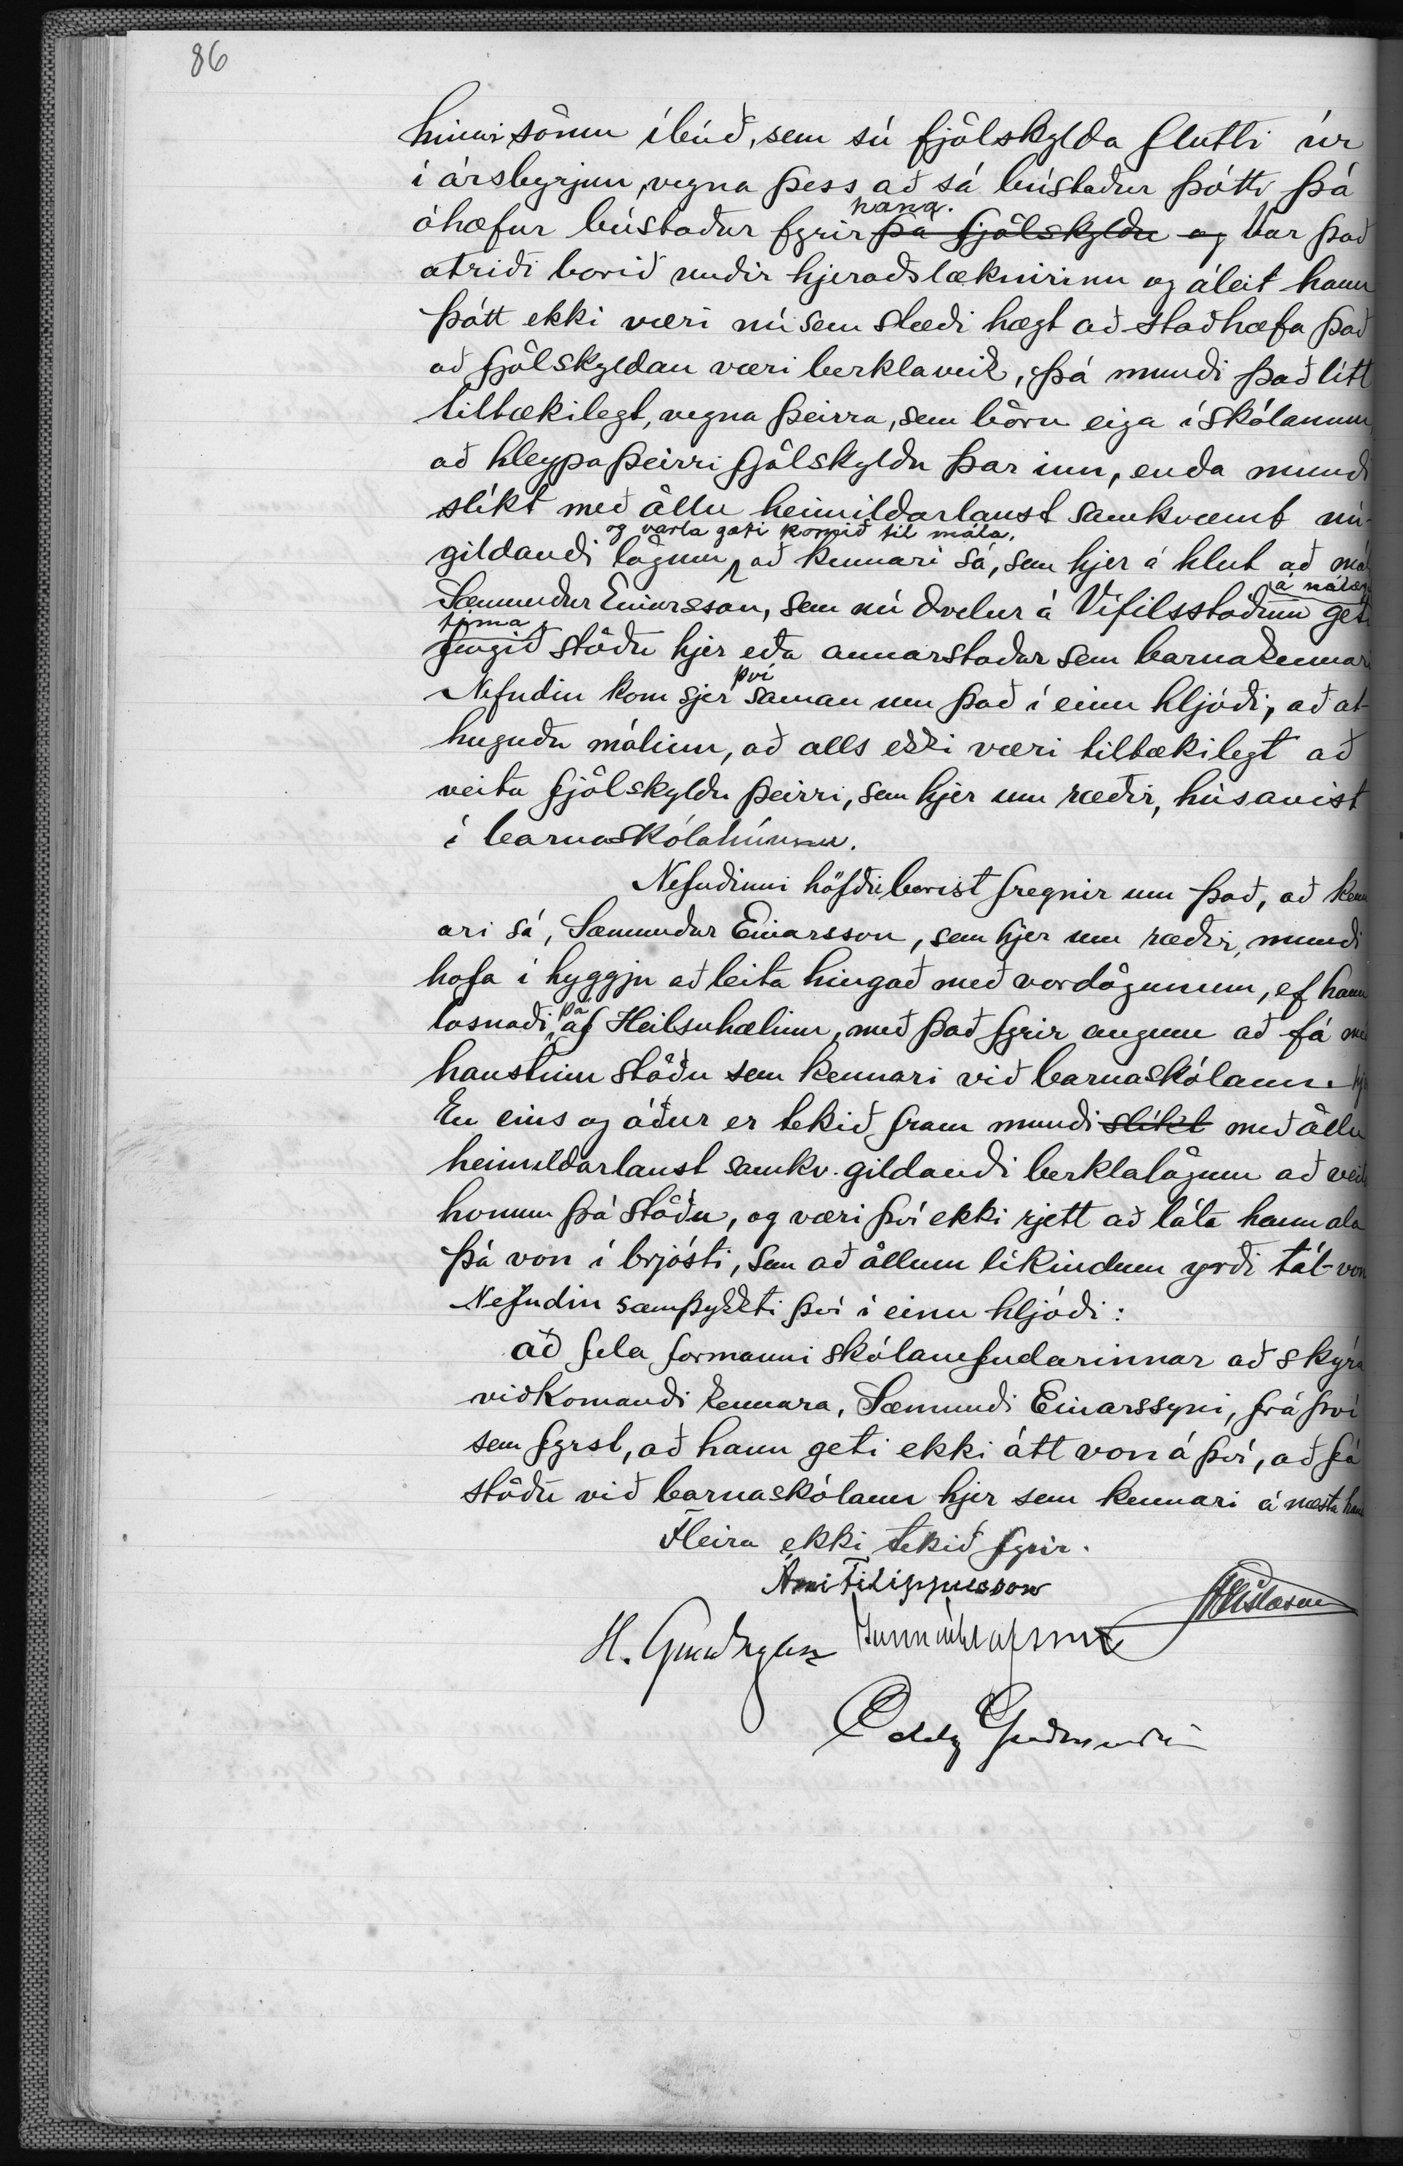 86
hinni sömu íbúð, sem sú fjölskylda flutti úr
í ársbyrjun, vegna þess að sá bústaður þótti þá
hana.
óhæfur bústaður fyrir þá fjölskyldu og Var það
atriði borið undir hjeraðslæknirinn og áleit hann
þótt ekki væri nú sem stæði hægt að staðhæfa það
að fjölskyldan væri berklaveik, þá mundi það lítt
tiltækilegt, vegna þeirra, sem börn eiga í skólanum
að hleypa þeirri fjölskyldu þar inn, enda mundi
slíkt með öllu heimildarlaust samkvæmt nú-
og varla gæti komið til mála,
gildandi lögum að kennari sá, sem hjer á hlut að mál
á næsta
Sæmundur Einarsson, sem nú dvelur á Vífilsstöðum geti
tíma
fengið stöðu hjer eða annarstaðar sem barnakennari
því
Nefndin kom sjer saman um það í einu hljóði, að at-
huguðu málinu, að alls ekki væri tiltækilegt að
veita fjölskyldu þeirri, sem hjer um ræðir, húsavist
í barnaskólahúsinu.
Nefndinni höfðu borist fregnir um það, að kenn
ari sá, Sæmundur Einarsson, sem hjer um ræðir, mundi
hafa í hyggju að leita hingað með vordögunum, ef hann
þá
losnaði af Heilsuhælinu, með það fyrir augum að fá með
haustinu stöðu sem kennari við barnaskólann hjer
En eins og áður er tekið fram mundi slíkt með öllu
heimildarlaust samkv. gildandi berklalögum að veita
honum þá stöðu, og væri því ekki rjett að láta hann ala
þá von í brjósti, sem að öllum líkindum yrði tál-von
Nefndin samþykkti því í einu hljóði:
að fela formanni skólanefndarinnar að skýra
viðkomandi kennara, Sæmundi Einarssyni, frá því
sem fyrst, að hann geti ekki átt von á því, að fá
stöðu við barnaskólann hjer sem kennari á næsta haus
Fleira ekki tekið fyrir.
Árni Filippusson
Gíslason
H. Guðm Gunnar Ólafsson
Oddg Guðmunds